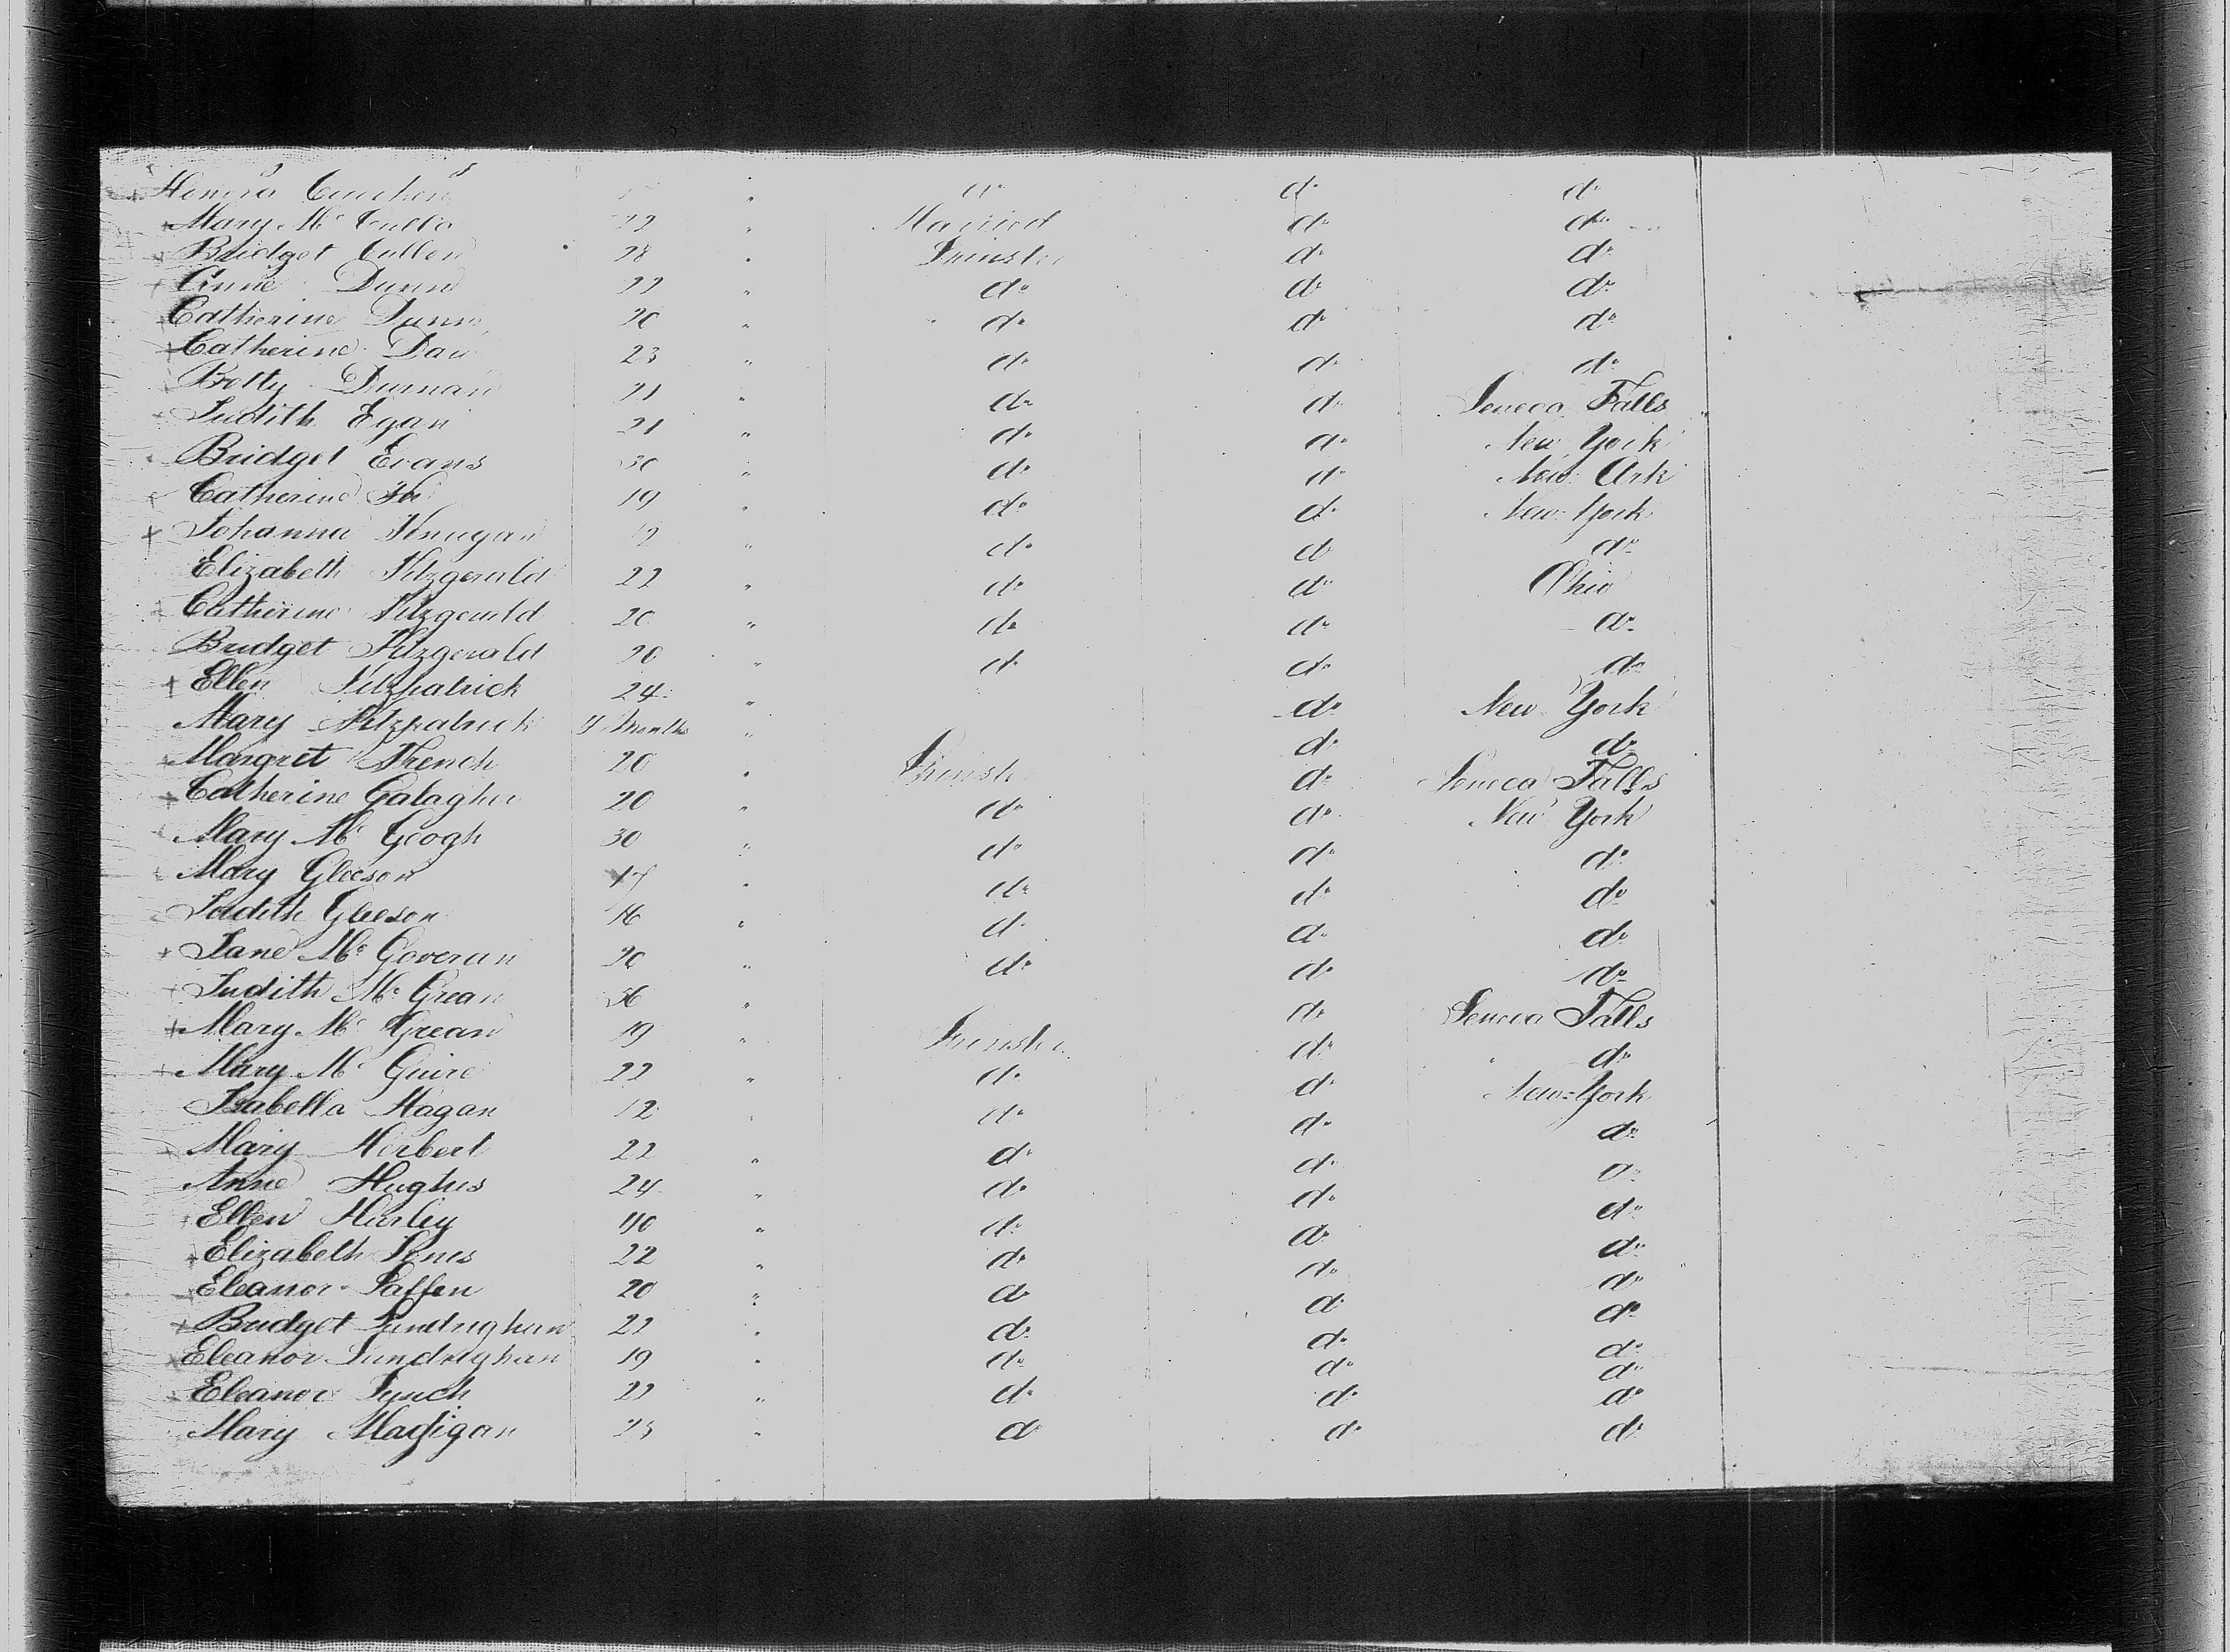 + Honora " do do do
+ Mary Mc 22 " Married do do
+ Bridget Cullen 28 " Spinster do do
+ Anne Dunn 22 " do do do
+ Catherine Dunn 20 " do do do
+ Catherine 23 " do do do
Betty Durnan 21 " do do Seneca Falls
+ Judith Egan 21 " do do New York
+ Bridget Evans 30 " do do New Ark
+ Catherine 19 " do do New York
+ Johanna Finnigan 19 " do do do
Elizabeth Fitzgerald 22 " do do Ohio
+ Catherine Fitzgerald 20 " do do do
Bridget Fitzgerald 20 " do do do
+ Ellen Fitzpatrick 24 " do New York
Mary Fitzpatrick Months " do do
+ Margret French 20 " Spinster do Seneca Falls
+ Catherine Galagher 20 " do do New York
+ Mary Mc Geogh 30 " do do do
+ Mary Gleeson 17 " do do do
Judith Gleeson 16 " do do do
+ Jane Mc Goverun 20 " do do do
+ Judith Mc Grean 56 " do Seneca Falls
+ Mary Mc Grean 19 " Spinster do do
+ Mary Mc Guire 22 " do do New-York
Isabella Hagan 12 " do do do
+ Mary Herbert 22 " do do do
+ Anne Hughes 24 " do do do
+ Ellen Hurley 40 " do do do
+ Elizabeth Jones 22 " do do do
+ Eleanor Laffen 20 " do do do
+ Bridget Lundrighan 22 " do do do
+ Eleanor Lundrighan 19 " do do do
+ Eleanor Lynch 22 " do do do
Mary Madigan 23 " do do do